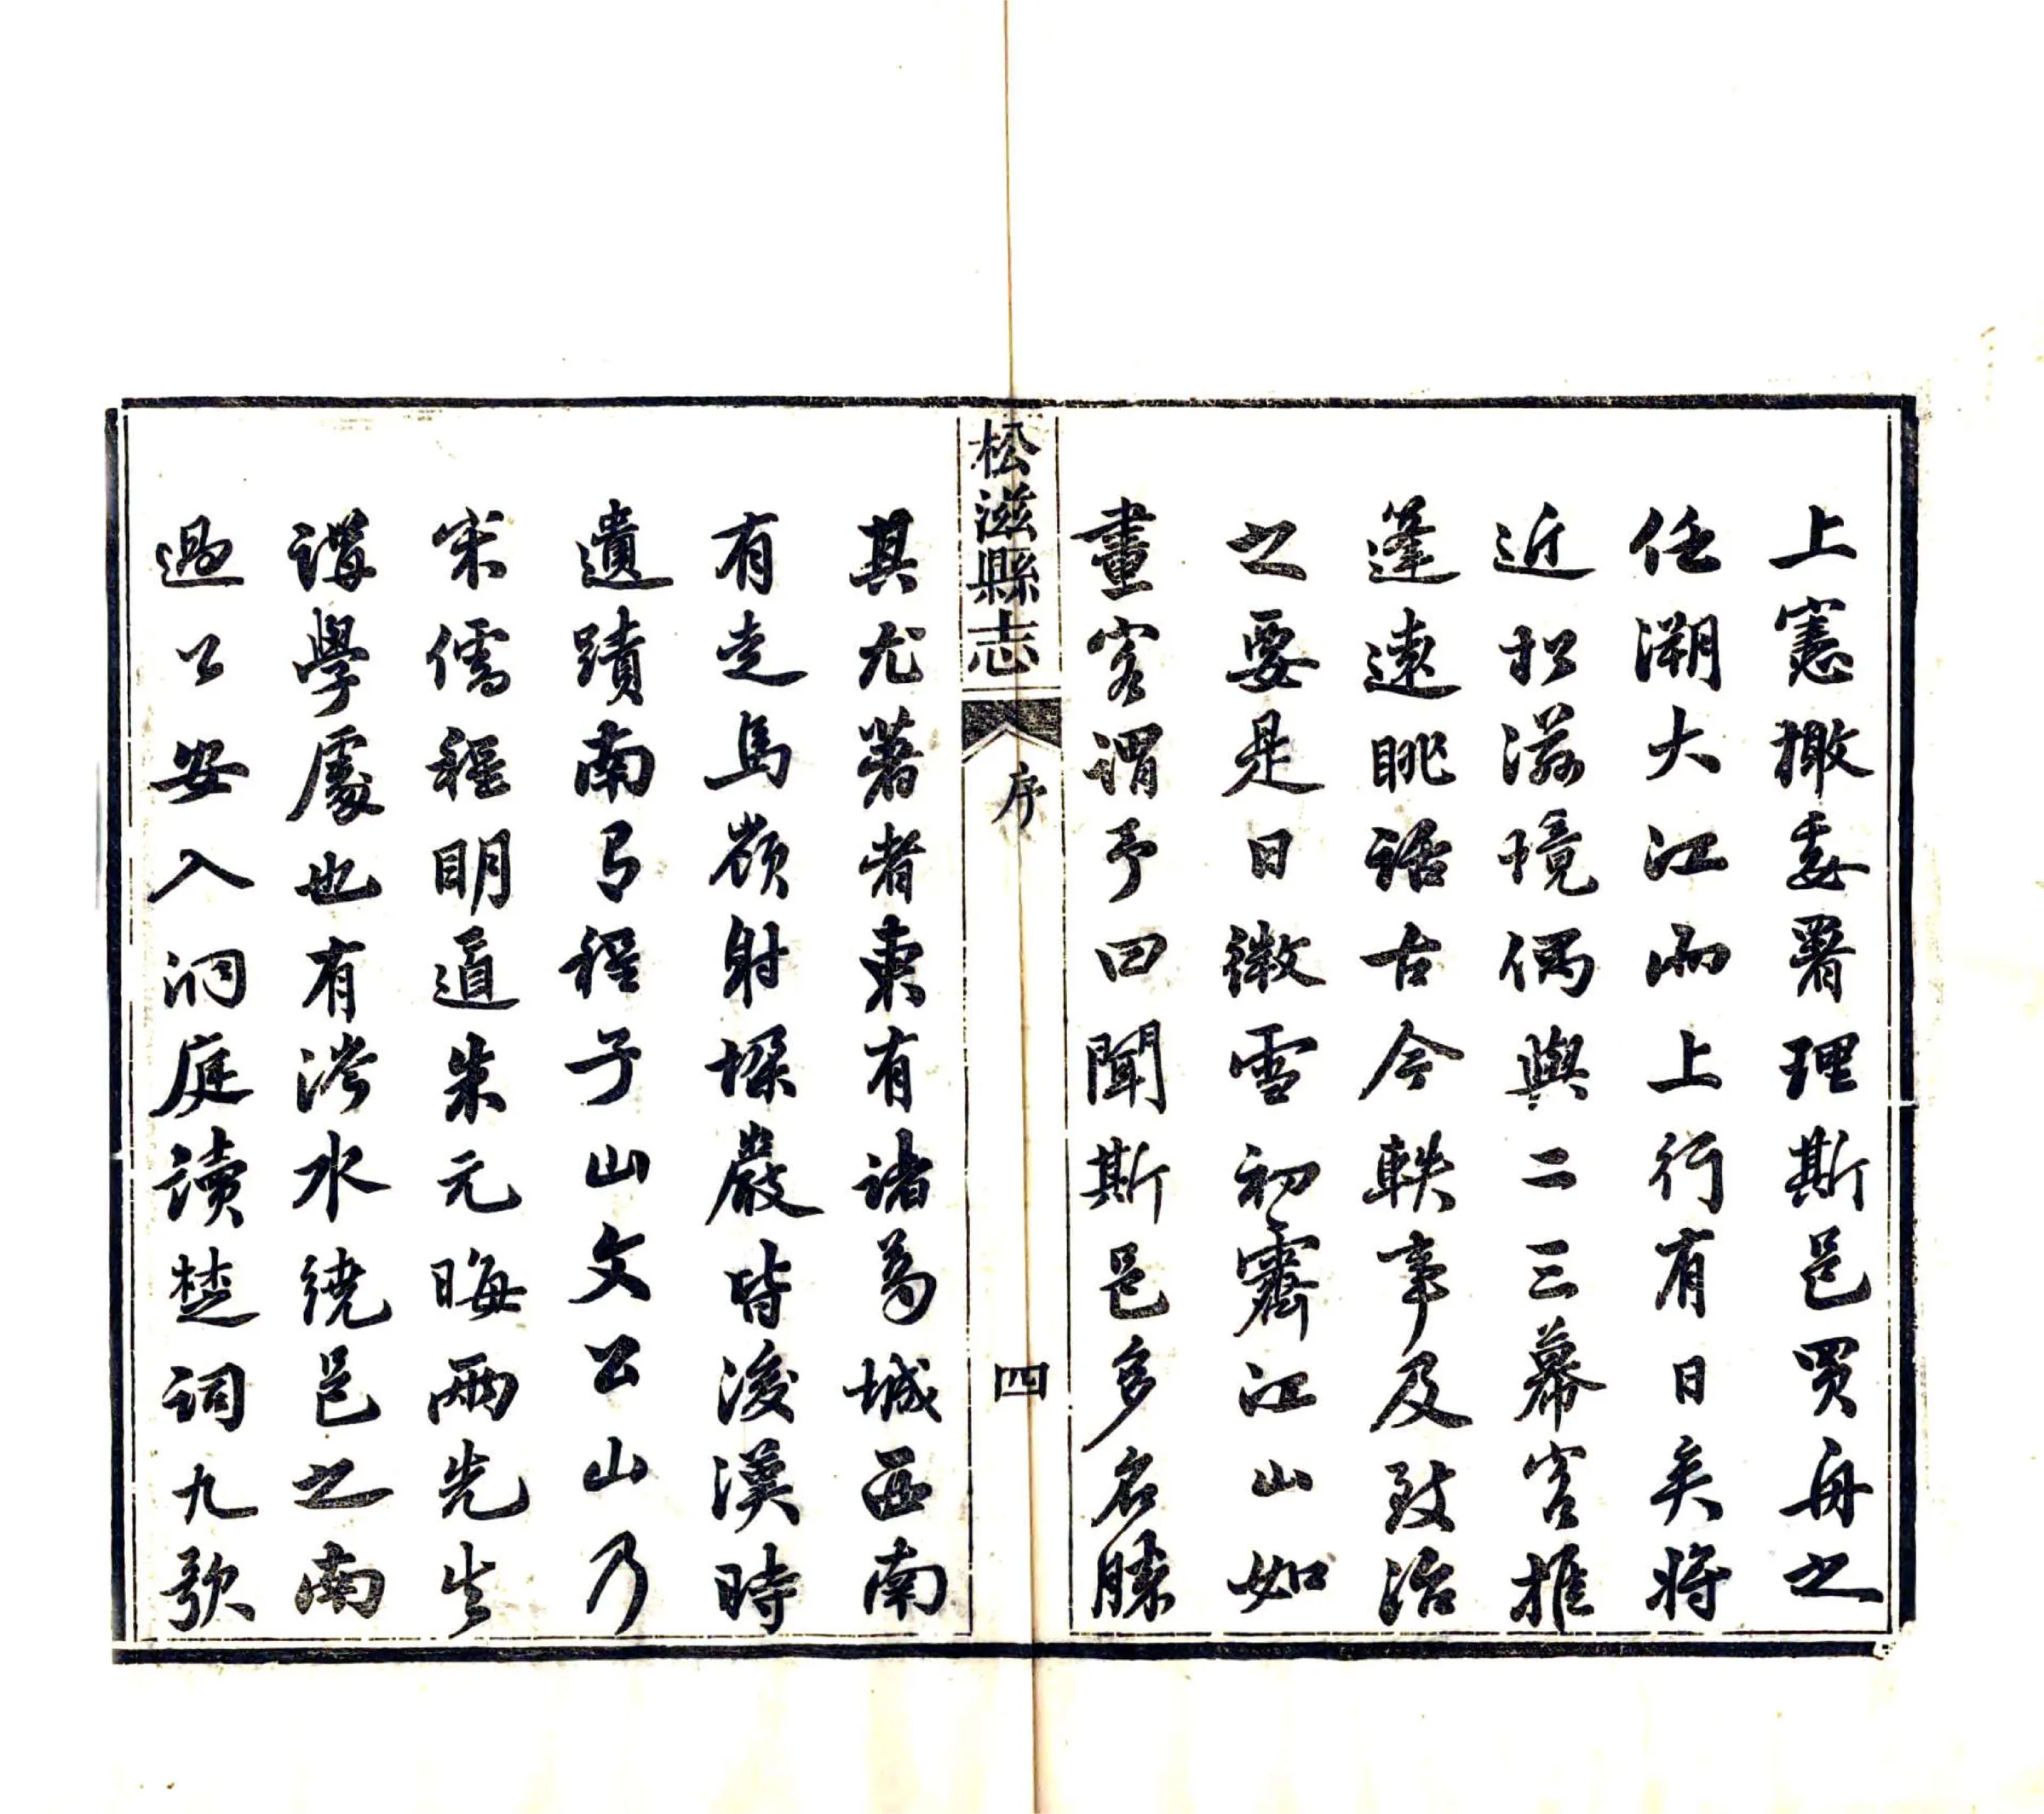 上憲檄委署理斯邑買舟之
任溯大江而上行有日矣將
近松滋境偶與二三幕客推
蓬遠眺話古今軼事及致治
之要是日微雪初霽江山如
畫客謂予曰聞斯邑多名勝
松滋縣志 序 四
其尤著者東有諸葛城西南
有走馬嶺射垛巖皆後漢時
遺蹟南程子山文公山乃
宋儒程明道朱元晦兩先生
講學處也有涔水繞邑之南
過公安入洞庭讀楚詞九歌